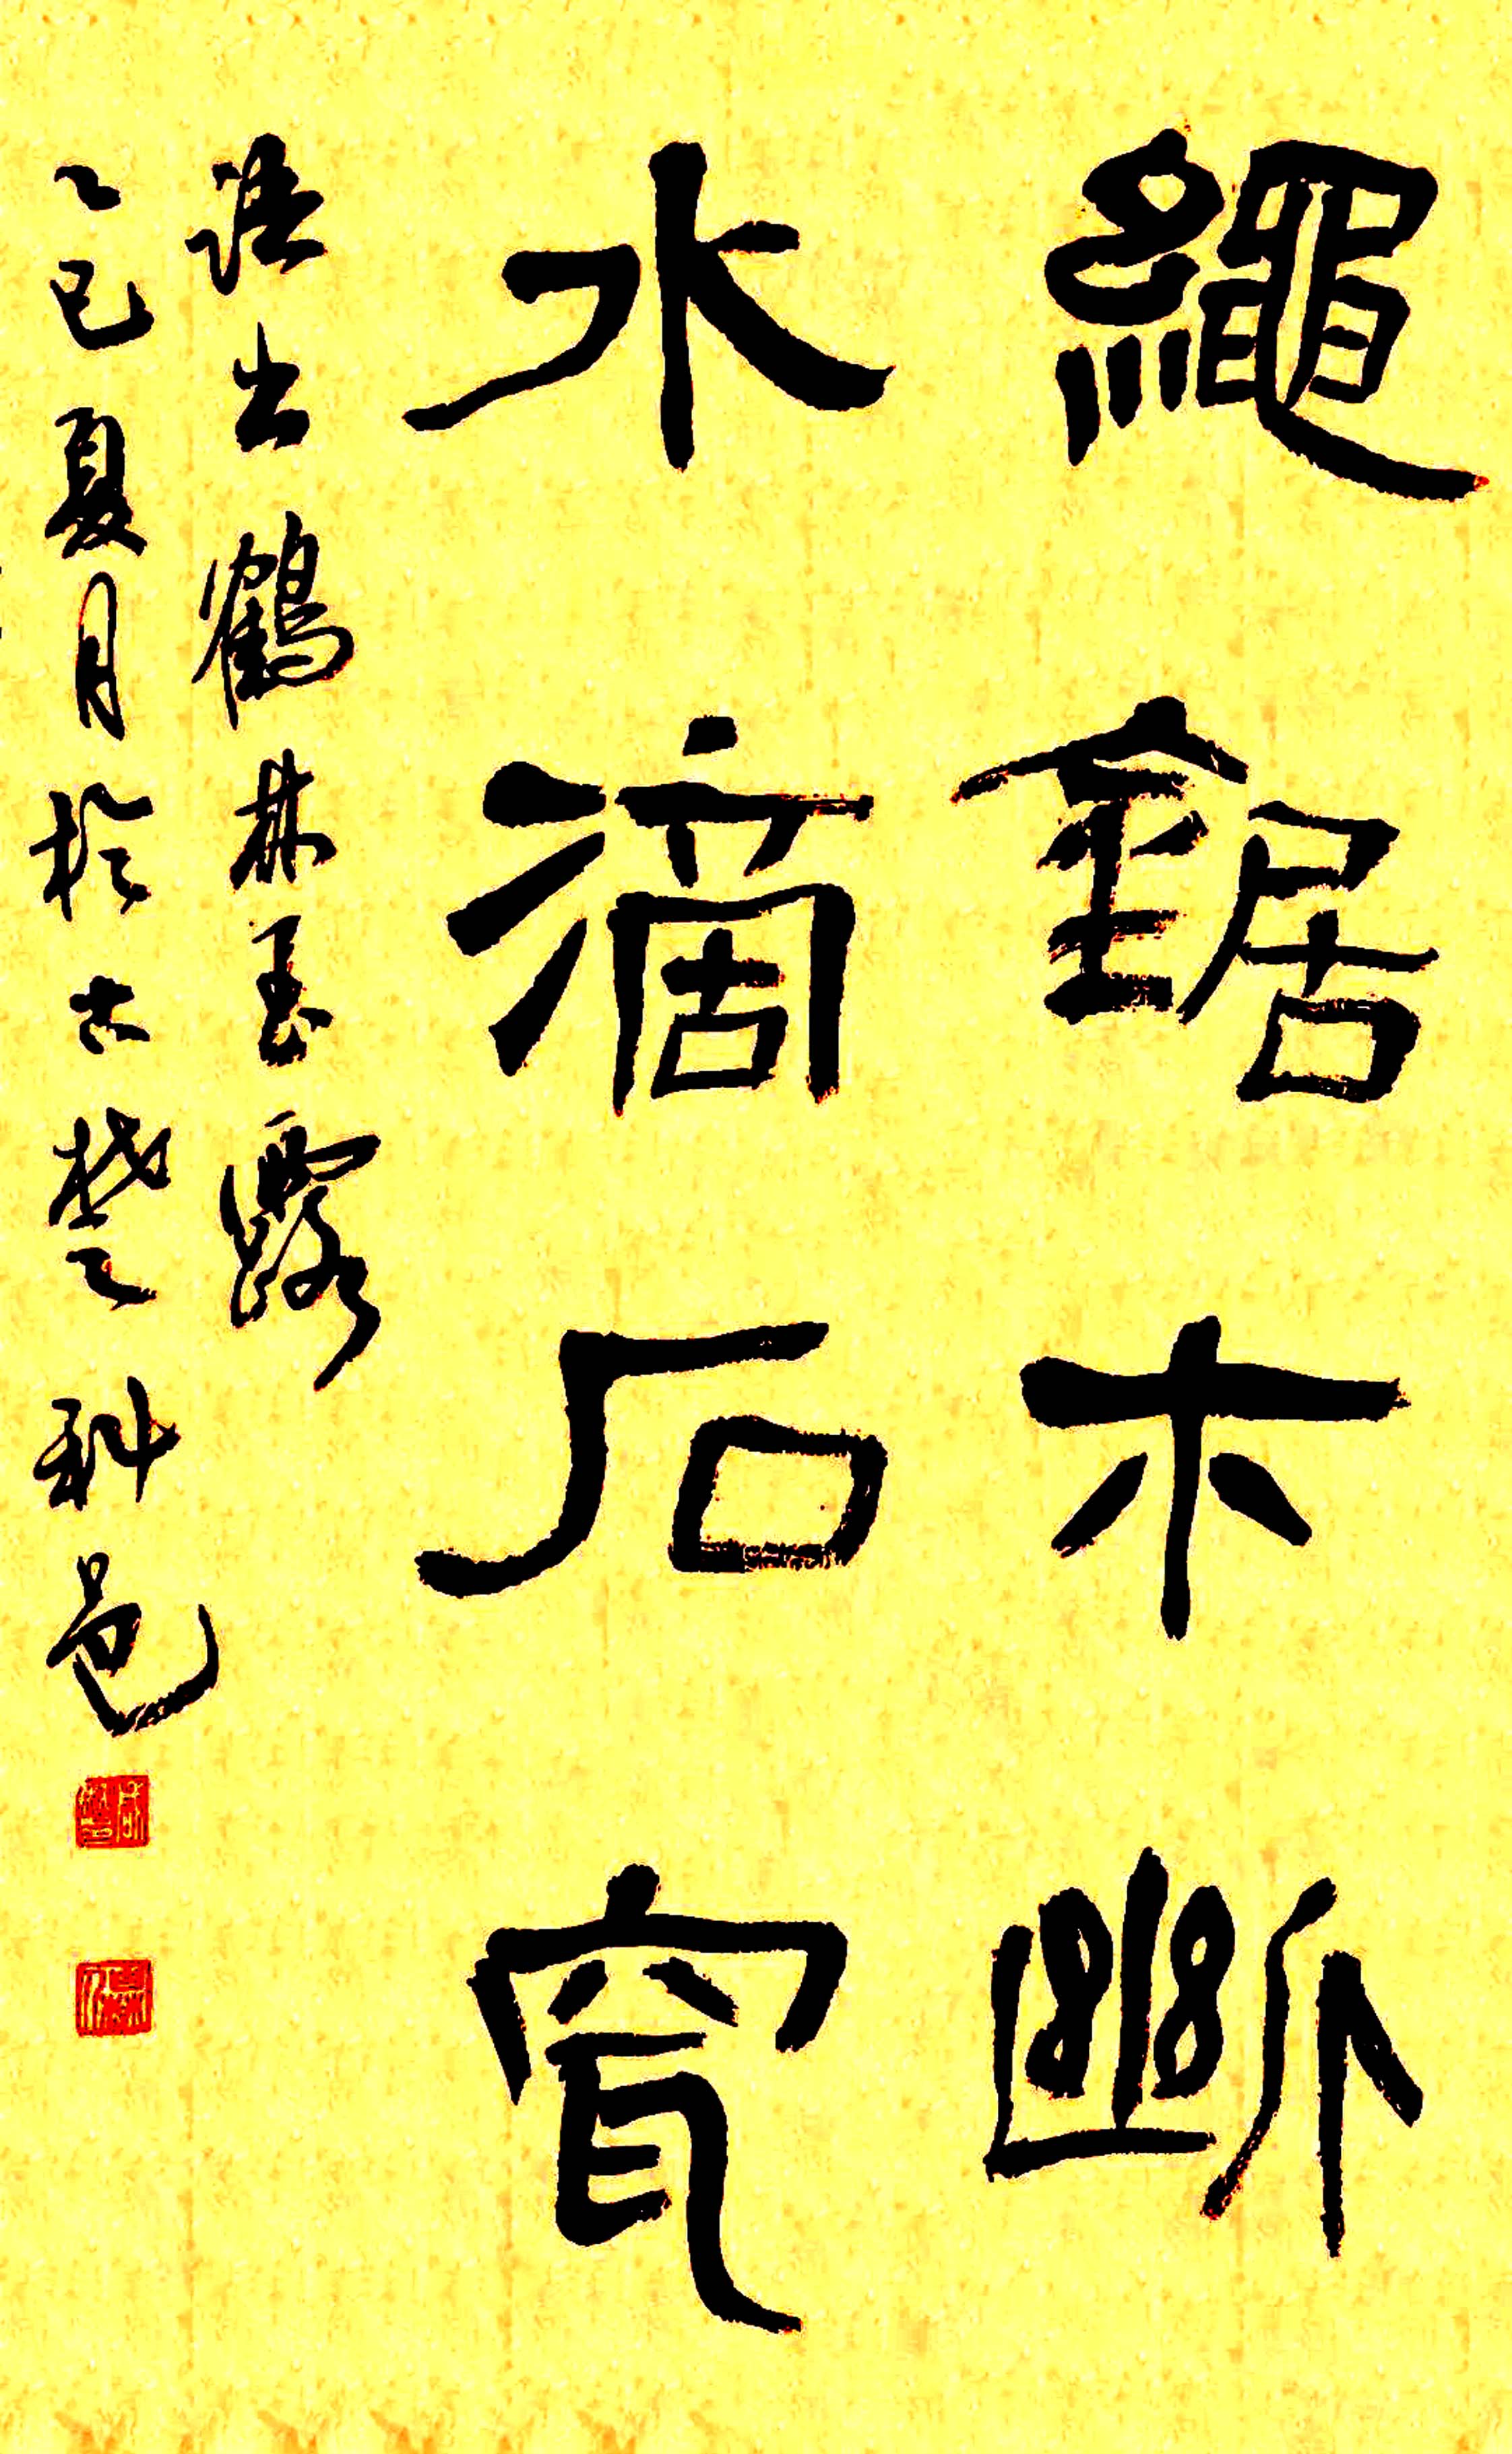 繩鋸木斷
水滴石窅
語出鶴林玉露
乙巳夏月於古楚科邑